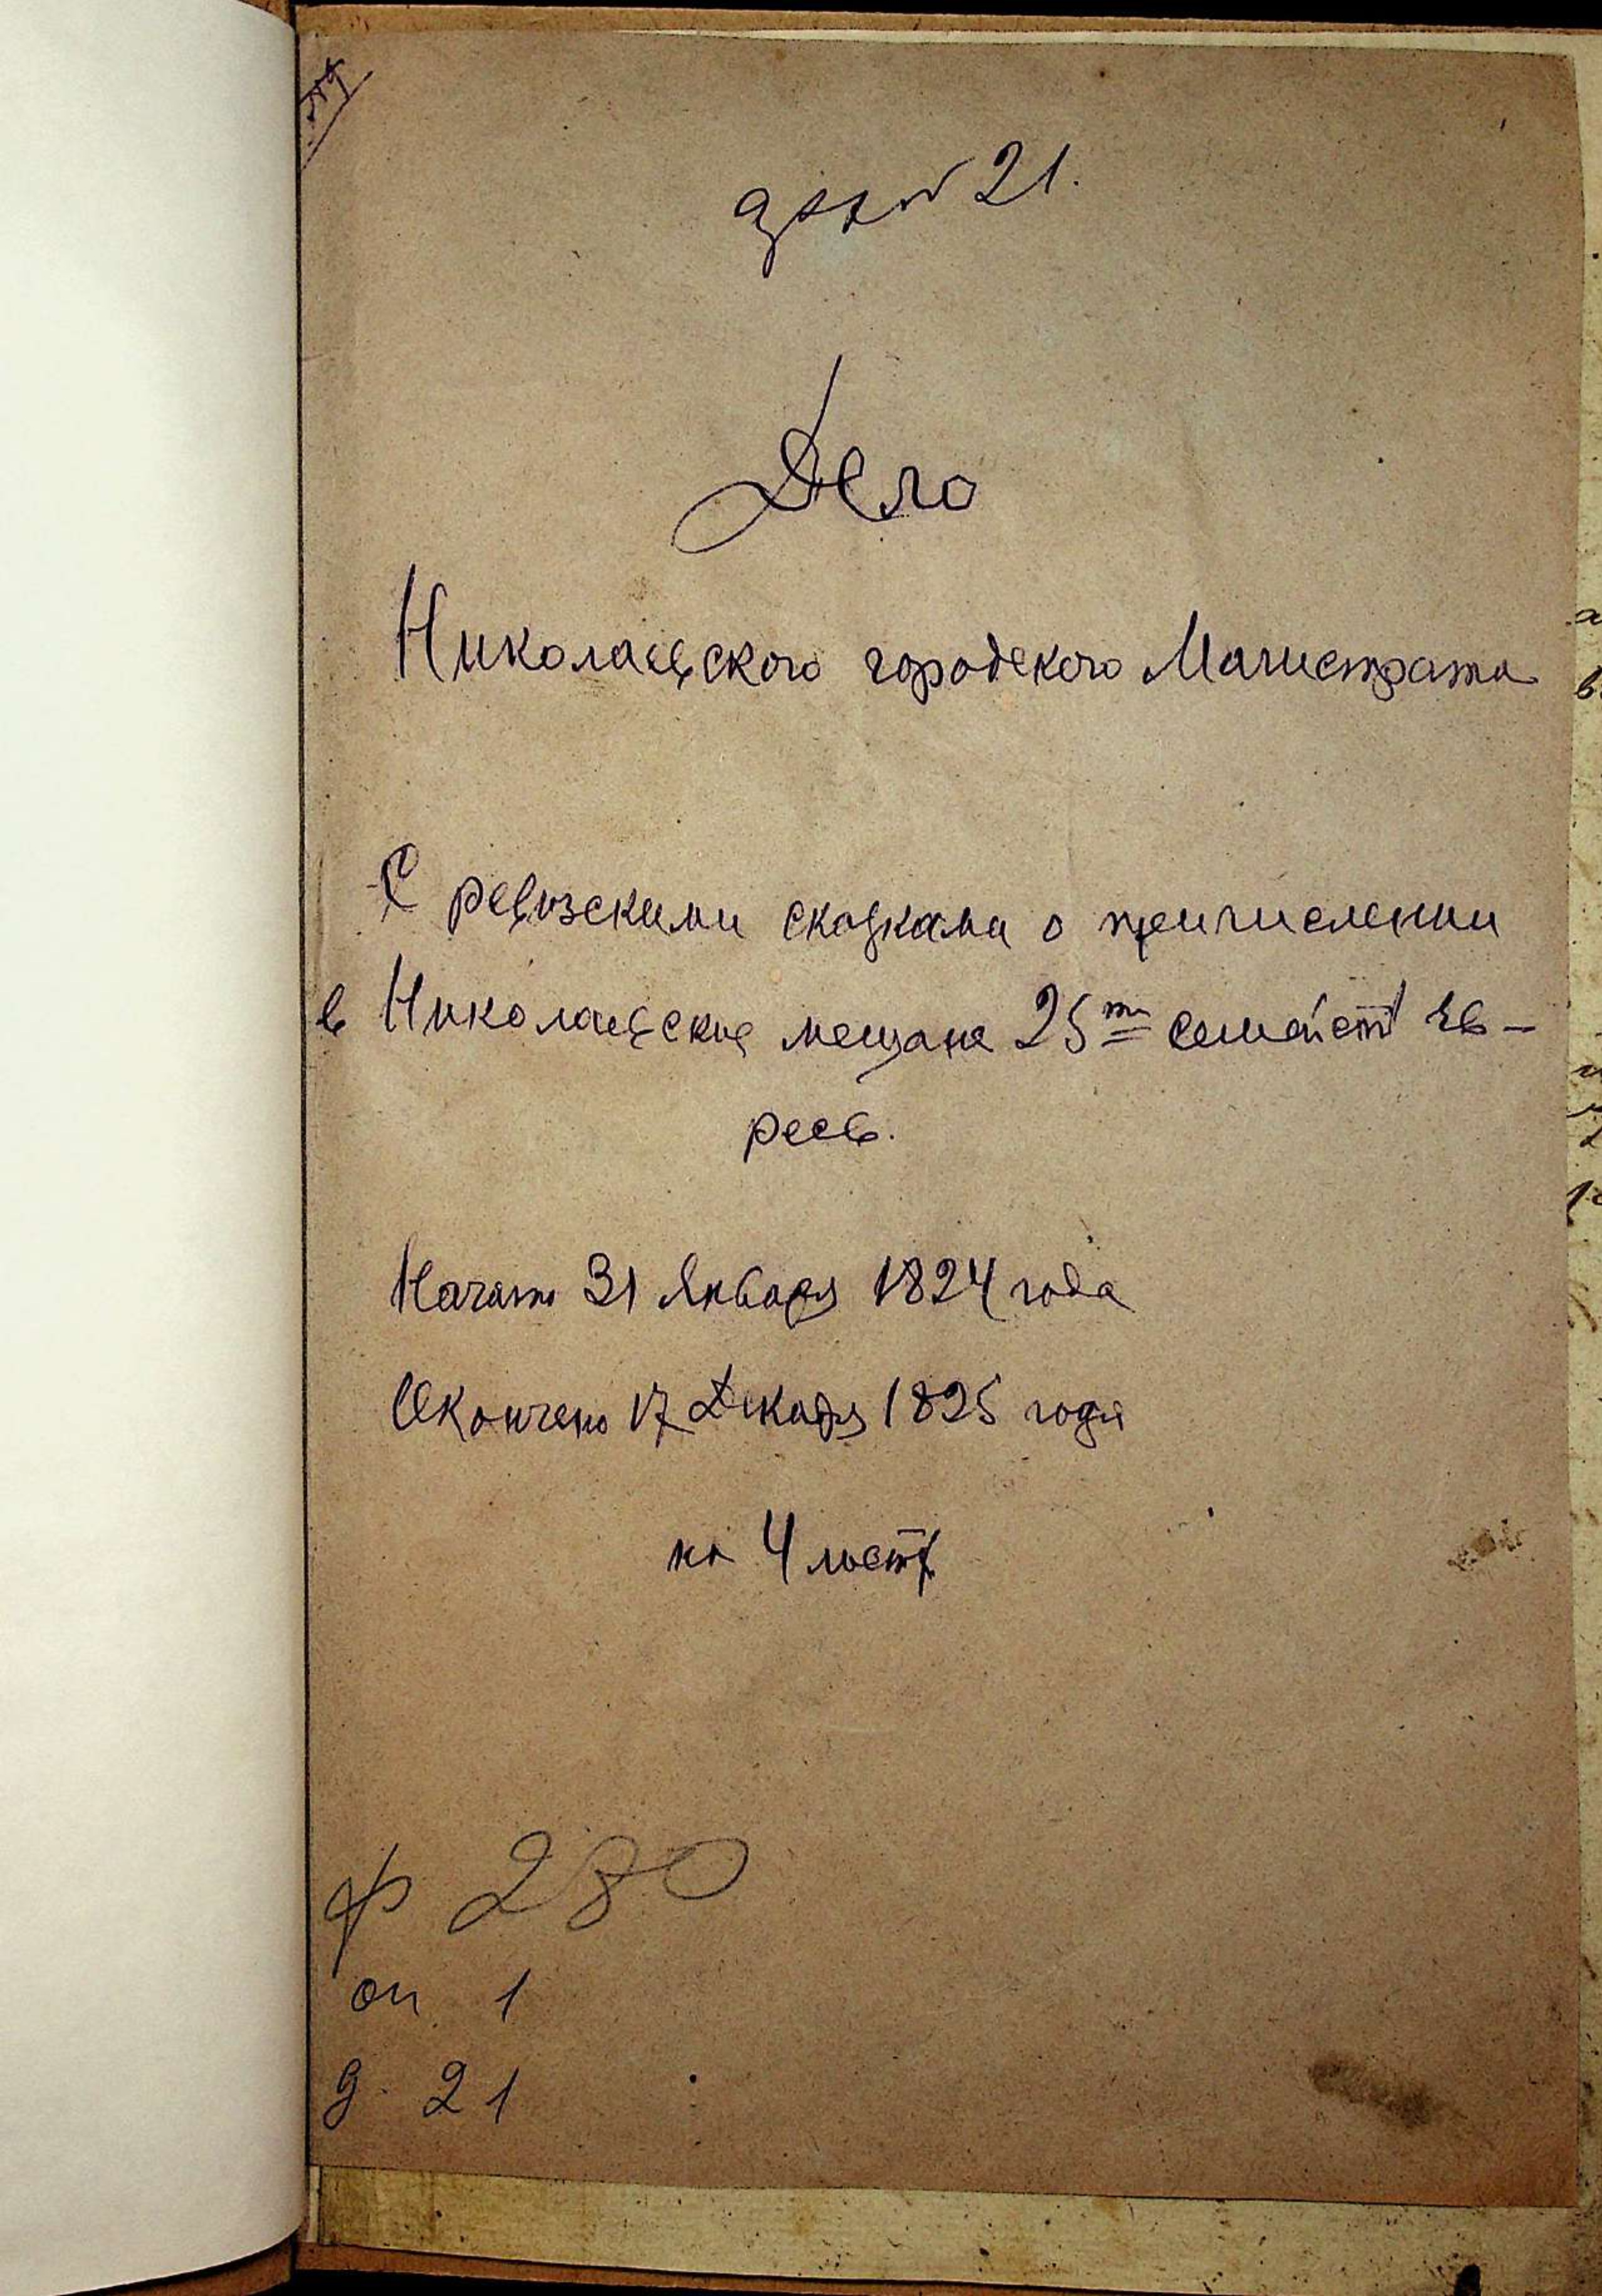 21.
Дело
Николаевского городского Магистрата
С ревизскими сказками о причислении
в Николаевские мещане 25ти семейств ев-
реев.
Начато 31 Января 1824 года
Окончено 17 Декабря 1825 года
на 4 листах
ф 280
оп 1
д. 21